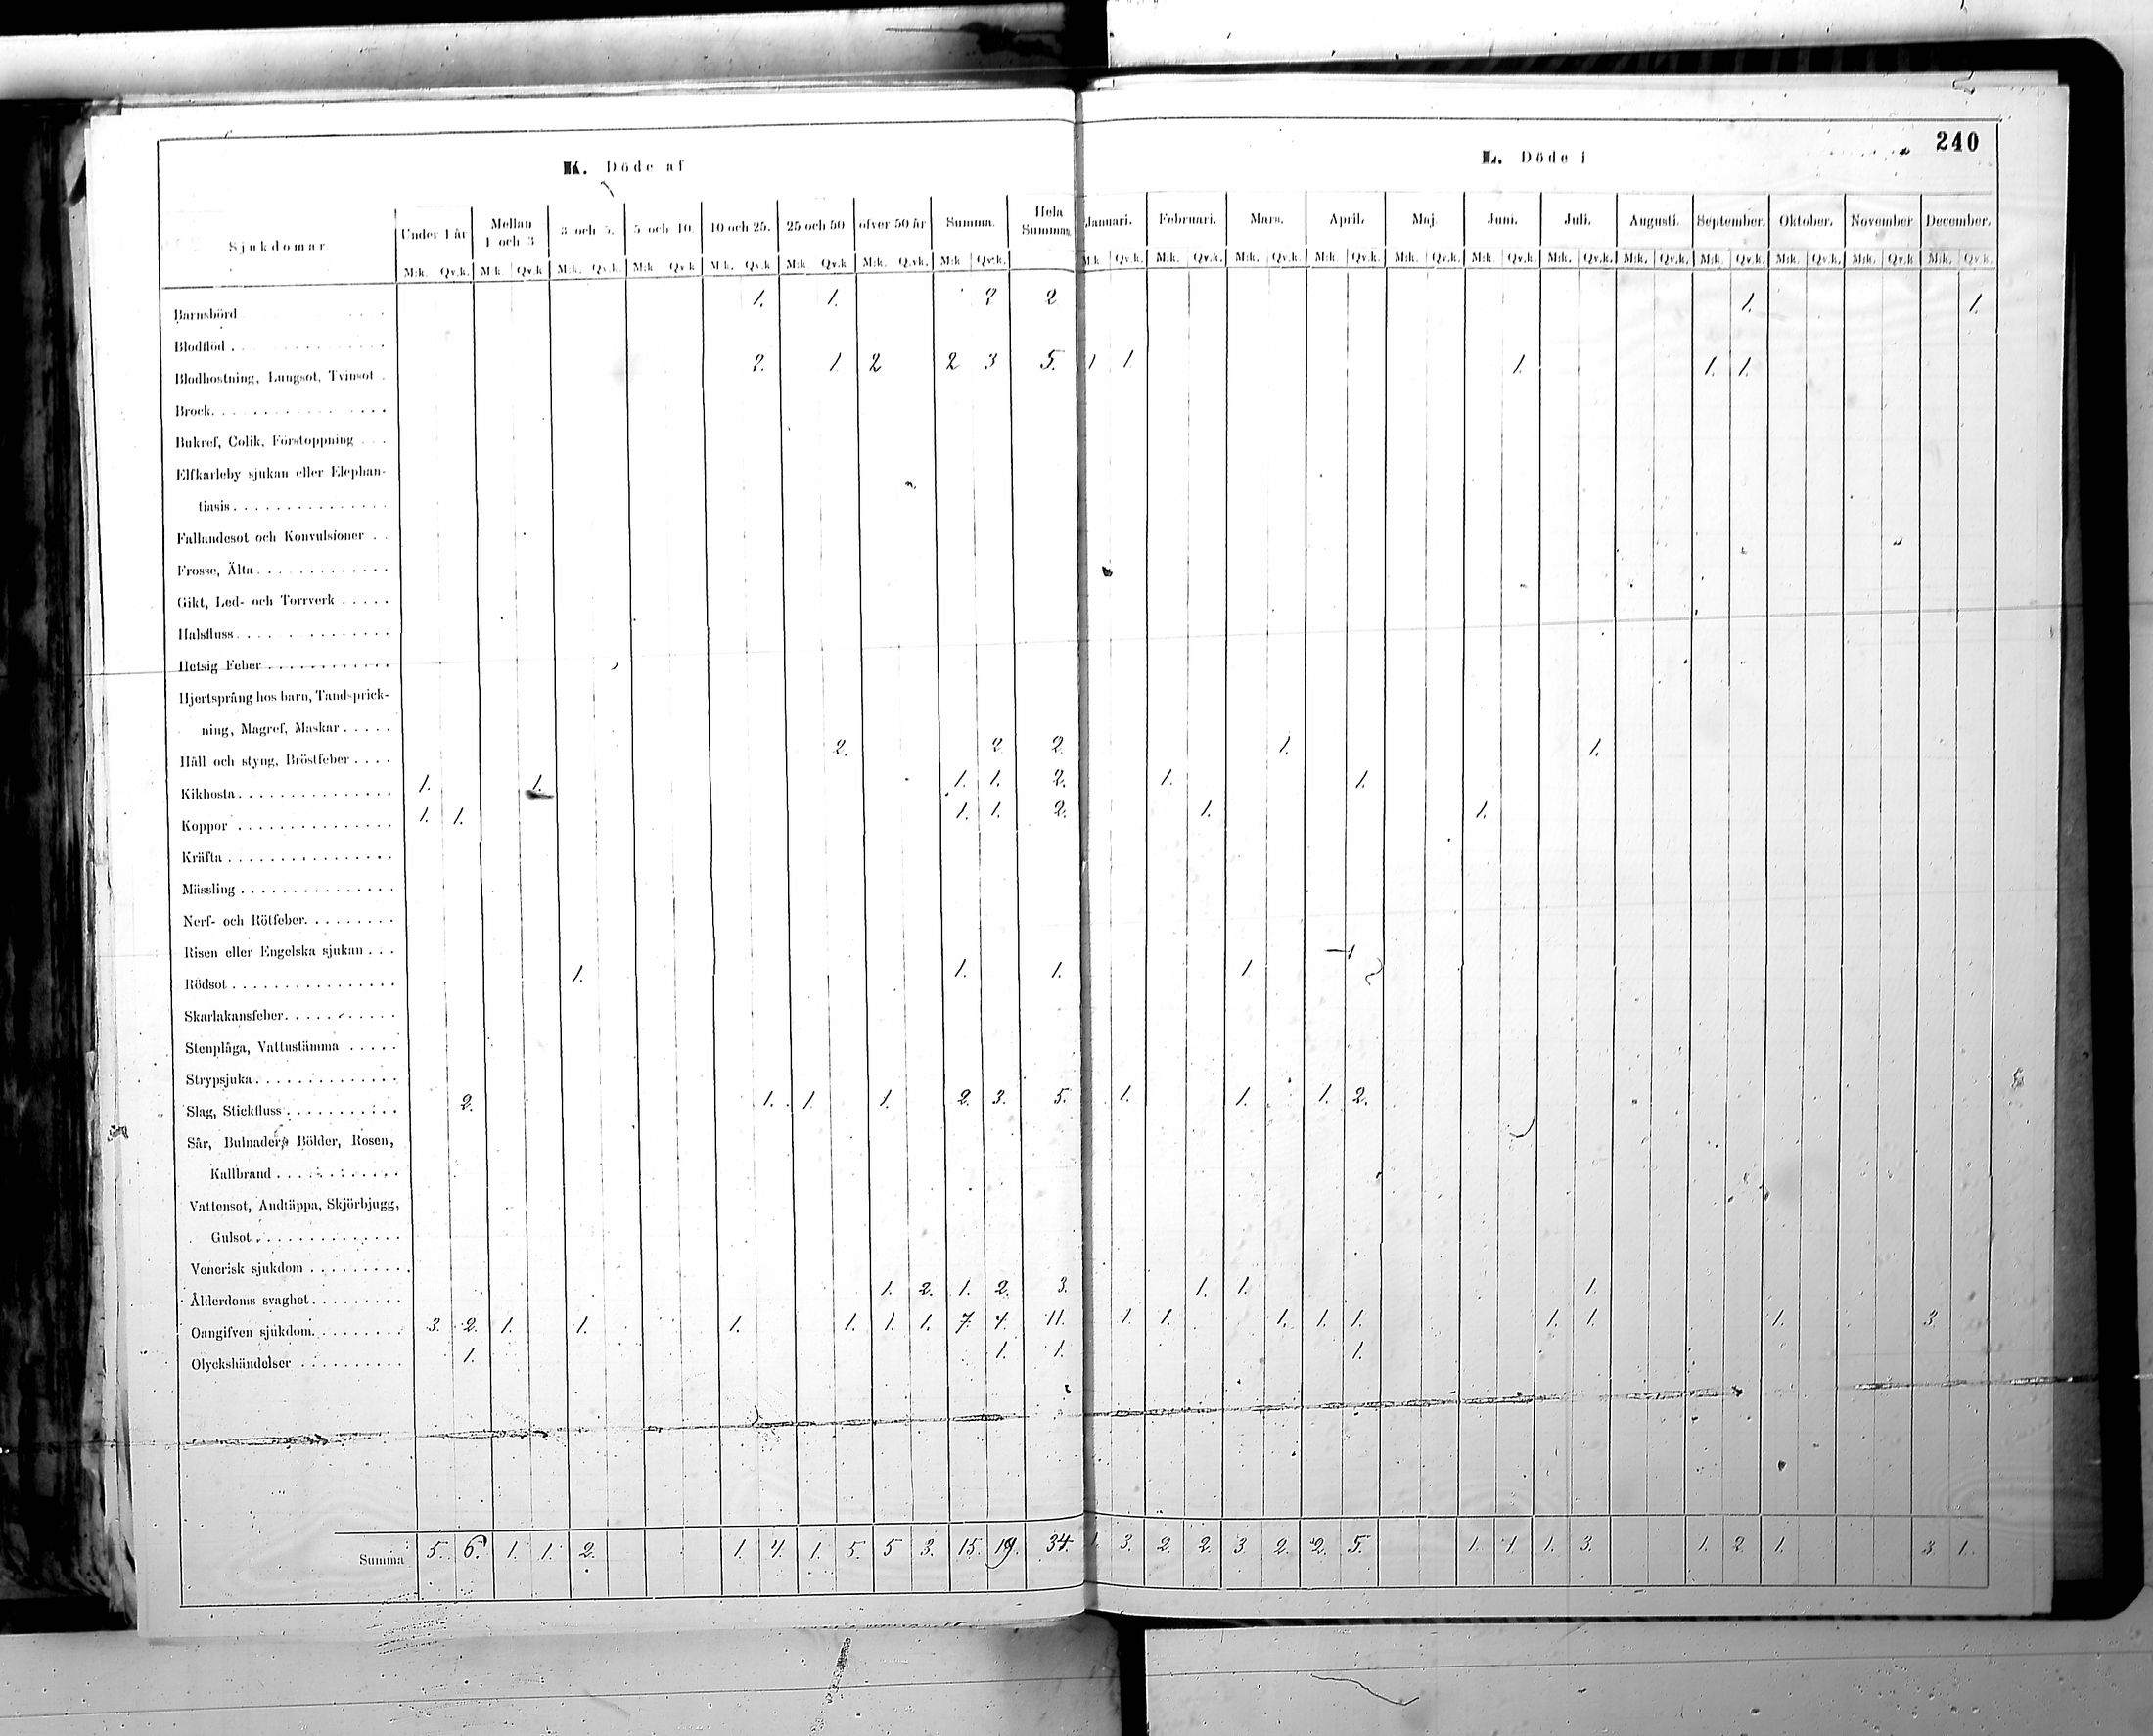 240
K. Döde af
L. Döde i
Sjukdomar Under 1 år Mellan 1 och 3 3 och 5. 5 och 10. 10 och 25. 25 och 50 öfver 50 år Summa. Hela Summan. Januari. Februari. Mars. April. Maj. Juni. Juli. Augusti. September. Oktober. November December.
M:k. Qv.k. M:k. Qv.k M:k. Qv.k. M:k Qv.k M:k. Qv.k M:k Qv.k M:k. Qv.k. M:k Qv.k. M:k Qv.k. M:k. Qv.k. M:k. Qv.k. M:k. Qv.k. M:k. Qv.k. M:k. Qv.k. M:k. Qv.k. M:k. Qv.k. M:k. Qv.k. M:k. Qv.k. M:k. Qv.k M:k. Qv.k.
Barnsbörd 1. 1. 2 2 1. 1.
Blodflöd
Blodhostning, Lungsot, Tvinsot 2. 1. 2 2 3 5. 1 1. 1. 1. 1.
Brock
Bukref, Colik, Förstoppning
Elfkarleby sjukan eller Elephan-
tiasis
Fallandesot och Konvulsioner
Frosse, Älta
Gikt, Led- och Torrverk
Halsfluss
Hetsig Feber
Hjertsprång hos barn, Tandsprick-
ning, Magref, Maskar
Håll och styng, Bröstfeber 2. 2 2. 1. 1.
Kikhosta 1. 1. 1. 1. 2. 1. 1.
Koppor 1. 1. 1. 1. 2. 1. 1.
Kräfta
Mässling
Nerf- och Rötfeber
Risen eller Engelska sjukan
Rödsot 1. 1. 1. 1.
Skarlakansfeber
Stenplåga, Vattustämma
Strypsjuka
Slag, Stickfluss 2. 1. 1. 1. 2. 3. 5. 1. 1. 1. 2.
Sår, Bulnader, Bölder, Rosen,
Kallbrand
Vattensot, Andtäppa, Skjörbjugg,
Gulsot
Venerisk sjukdom
Ålderdoms svaghet 1. 2. 1. 2. 3. 1. 1. 1.
Oangifven sjukdom 3. 2. 1. 1. 1. 1. 1. 1. 7. 4. 11. 1. 1. 1. 1. 1. 1. 1. 1. 3.
Olyckshändelser 1. 1. 1. 1.
Summa 5. 6. 1. 1. 2. 1. 4. 1. 5. 5 3. 15. 19. 34. 1. 3. 2. 2. 3. 2. 2. 5. 1. 1. 1. 3. 1. 2 1. 3 1.